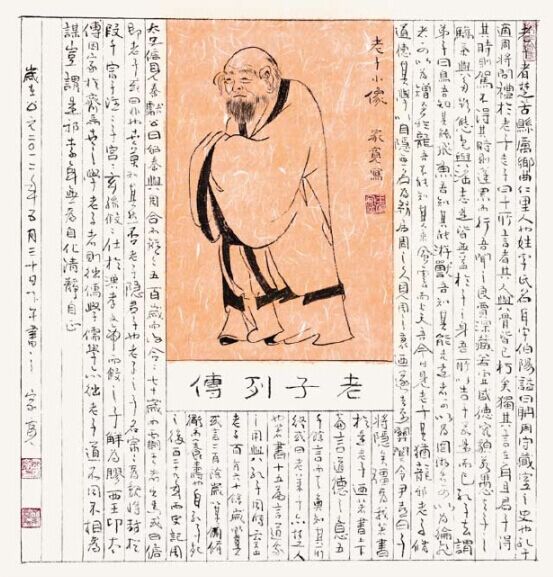 老子者楚苦縣厲鄉曲仁里人也姓李氏名耳字伯陽謚曰聃周守藏室之史也孔子
適周將問禮於老子老子曰子所言者其人與骨皆已朽矣獨其言在耳且君子得
其時則駕不得其時則蓬累而行吾聞之良賈深藏若虛君子盛德容貌若愚去子之
驕氣與多欲態色與淫志是皆無益於子之身吾所以告子若是而已孔子去謂
弟子曰鳥吾知其能飛魚吾知其能游獸吾知其能走走者可以為罔游者可以為綸飛
者可以為矰至於龍吾不能知其乘風雲而上天吾今日見老子其猶龍邪老子修
道德其學以自隱無名為務居周久之見周之衰迺遂去至關關令尹喜曰子
老子小像
寫
老子列傳
將隱矣彊為我著書
於是老子迺著書上下
篇言道德之意五
千餘言而去莫知其所
終或曰老萊子亦楚人
也著書十五篇言道家
之用與孔子同時云蓋
老子百有六十餘歲
或言二百餘歲以其脩
道而養壽也自孔子死
之後百二十九年而史記周
太史儋見秦獻公曰始秦與周合而離離五百歲而復合合七十歲而霸王者出焉或曰儋
即老子或曰非也世莫知其然否老子隱君子也老子之子名宗宗為魏將封於
段干宗子注注子宮宮玄孫假假仕於漢孝文帝而假之子解為膠西王卬太
傅因家於齊焉世之學老子者則絀儒學儒學亦絀老子道不同不相為
謀豈謂是邪李耳無為自化清靜自正
公元二〇一二年五月三十日